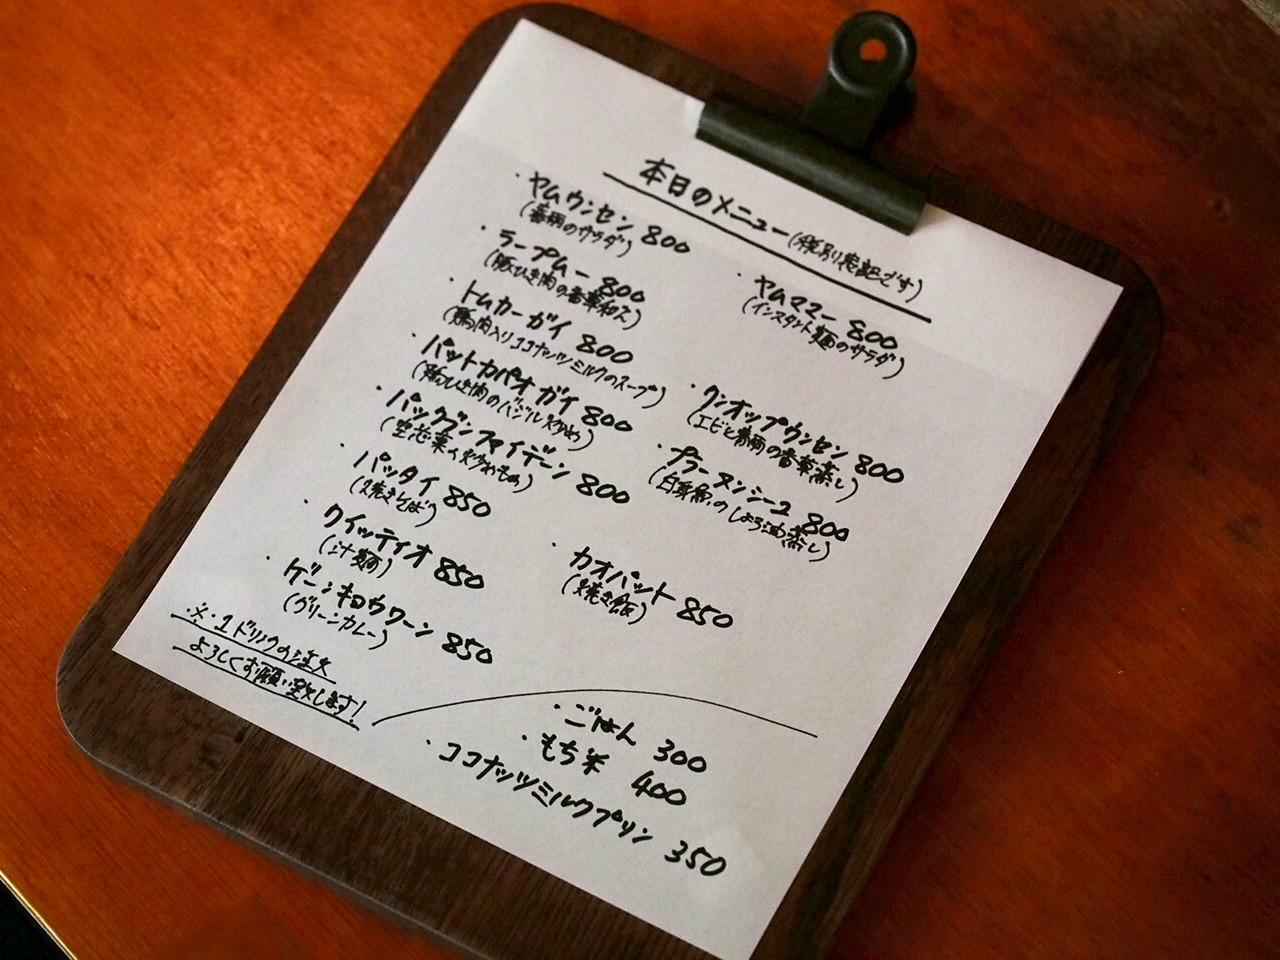 本日のメニュー(税別表記です)
・ヤムウンセン 800
(春雨のサラダ)
・ラープムー 800
(豚ひき肉の香草和え)
・トムカーガイ 800
(鶏肉入りココナッツミルクのスープ)
・パットカパオガイ 800
(鶏ひき肉のバジル炒め)
・パックブンファイデーン 800
(空芯菜の炒めもの)
・パッタイ 850
(焼きそば)
・クイッティオ 850
(汁麺)
・ゲーンキョウワーン 850
(グリーンカレー)
・ヤムママー 800
(インスタント麺のサラダ)
・クンオップウンセン 800
(エビと春雨の香草蒸し)
・プラーヌンシーユ 800
(白身魚のしょう油蒸し)
・カオパット 850
(焼き飯)
※・1ドリンクの注文
よろしくお願い致します!
・ごはん 300
・もち米 400
・ココナッツミルクプリン 350